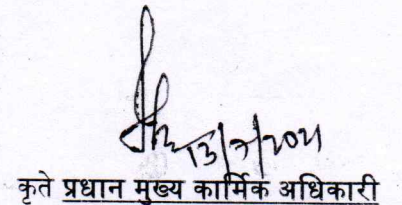 13/7/2021
कृते प्रधान मुख्य कार्मिक अधिकारी